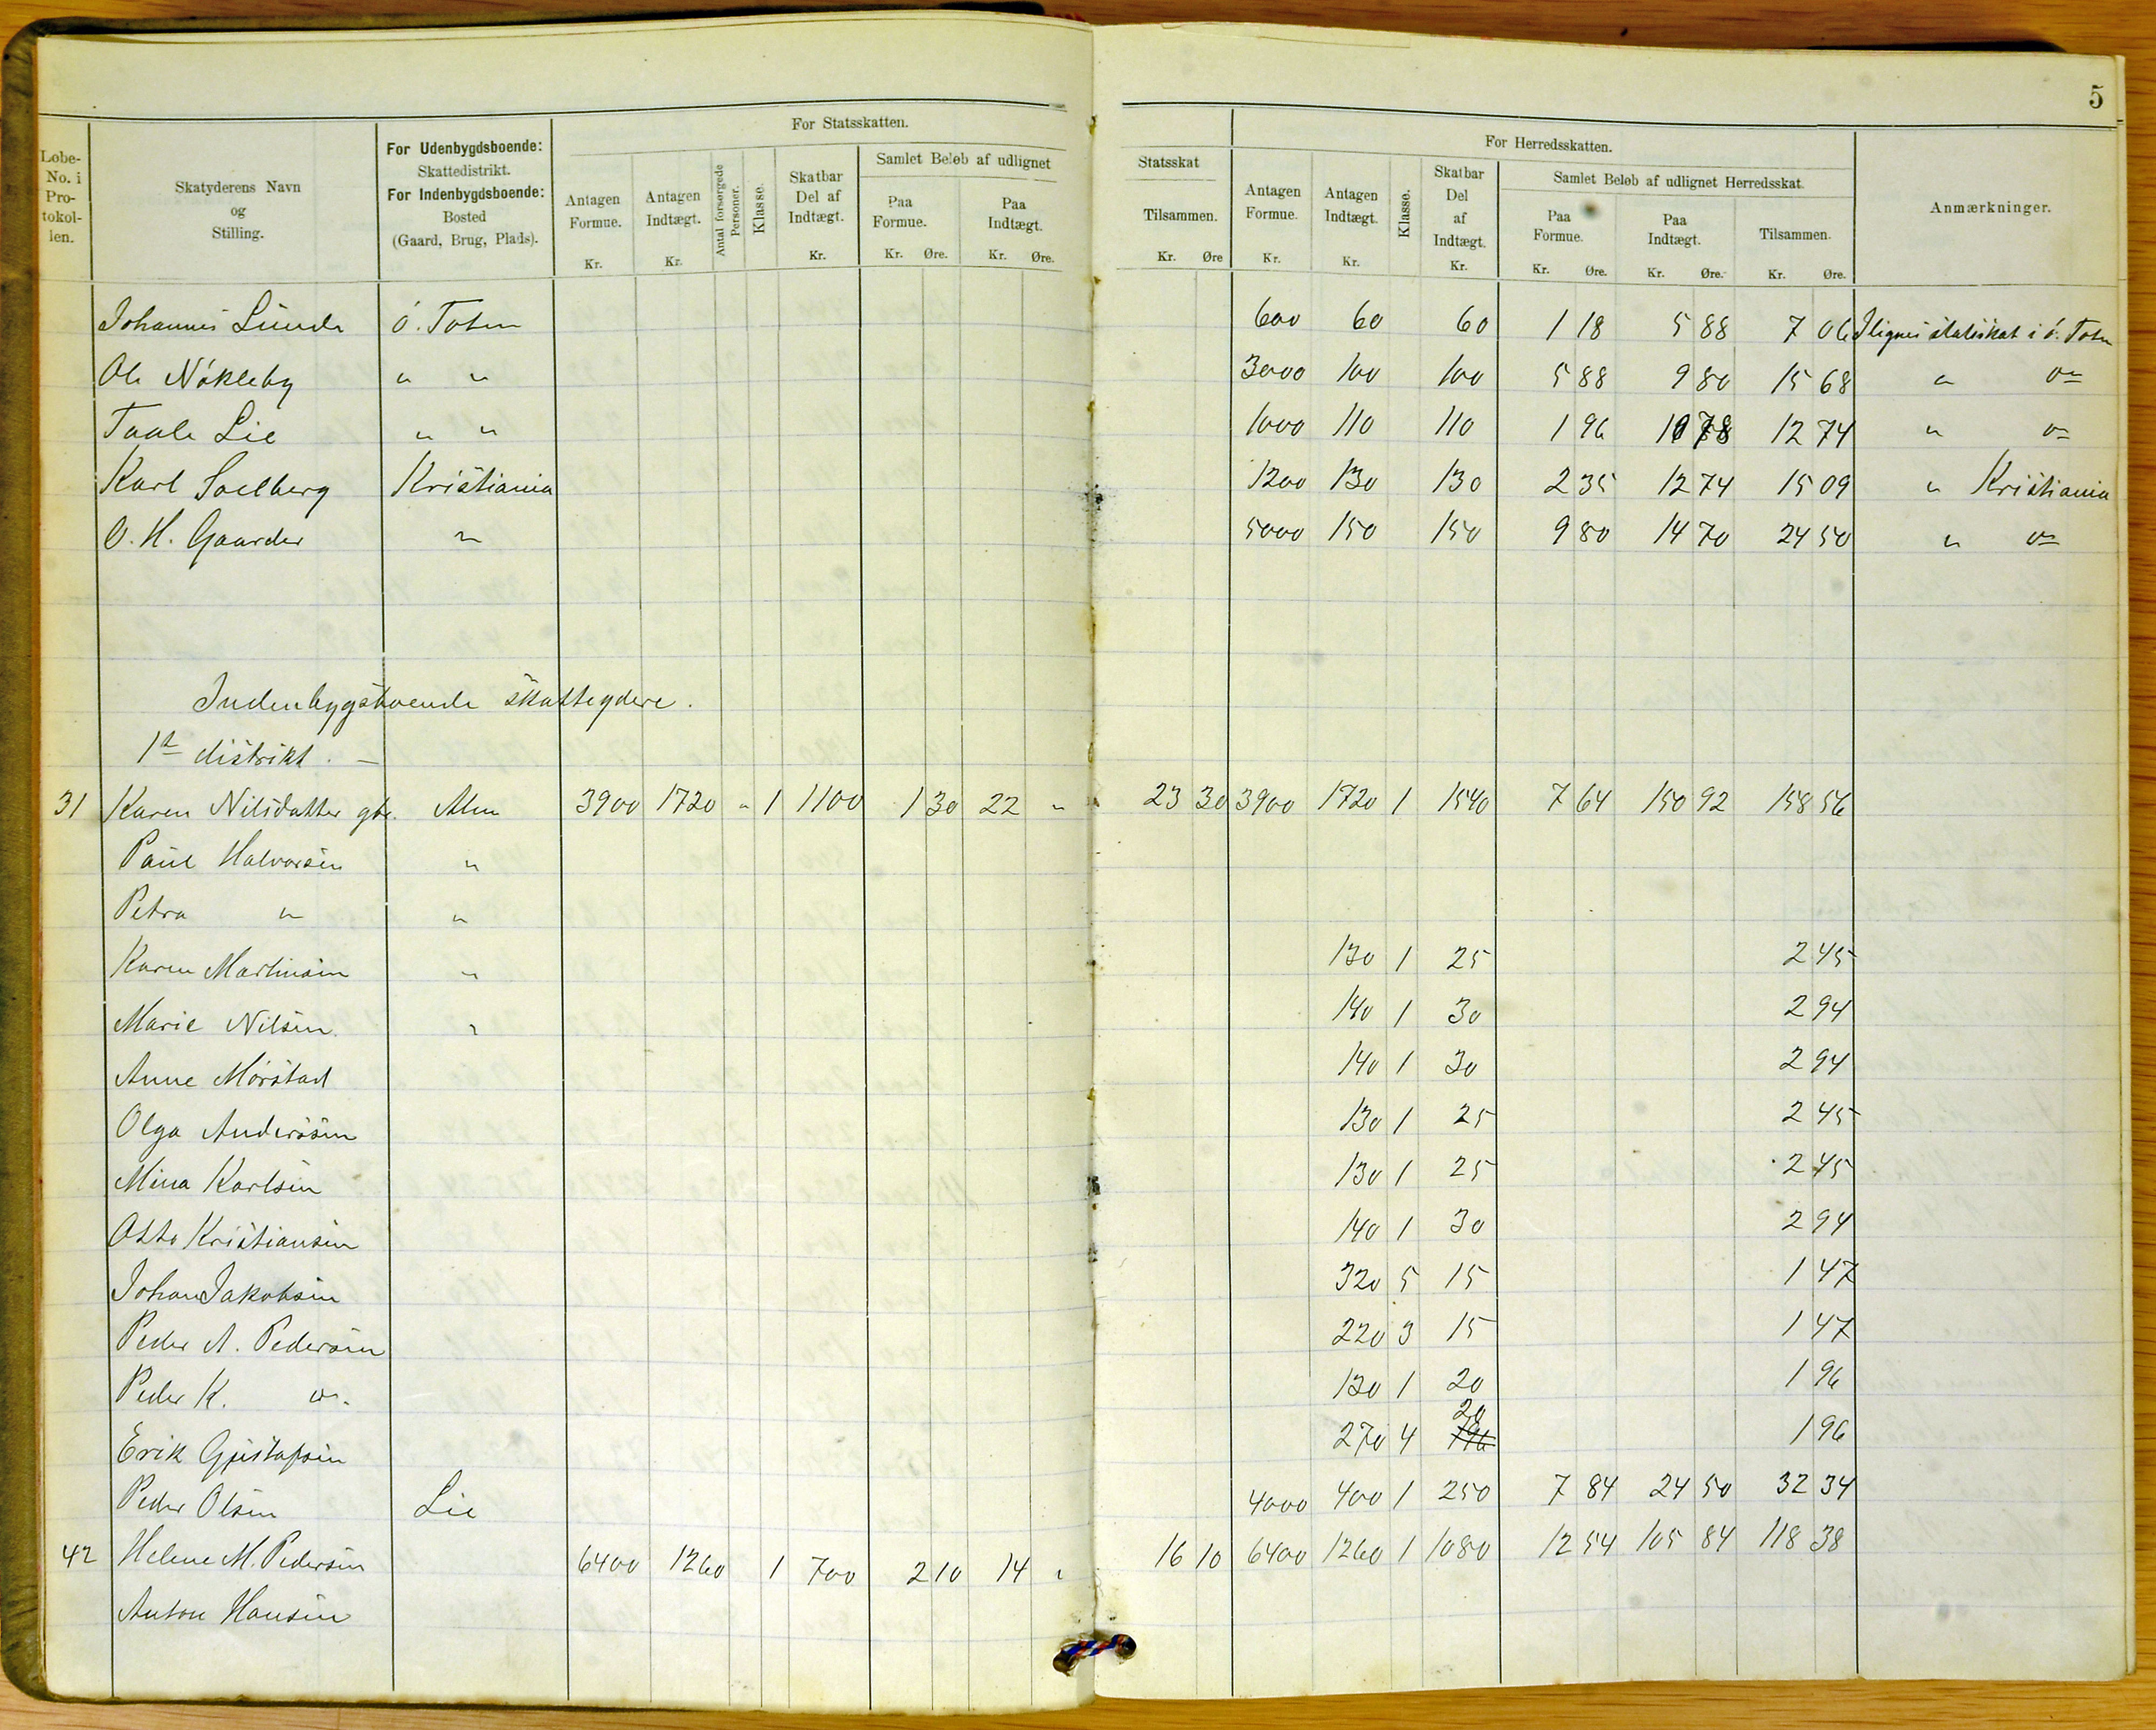 5
For Statsskatten.
For Herredsskatten.
Løbe-No. i Pro-tokol-len.
Skatyderens Navn og Stilling.
For Udenbygdsboende: Skattedistrikt. For Indenbygdsboende: Bosted (Gaard, Brug, Plads).
Antagen Formue. Kr.
Antagen Indtægt. Kr.
Antal forsørgede Personer.
Klasse.
Skatbar Del af Indtægt. Kr.
Samlet Beløb af udlignet
Paa Formue. Kr. Øre.
Paa Indtægt. Kr. Øre.
Statsskat
Tilsammen. Kr. Øre
Antagen Formue. Kr.
Antagen Indtægt. Kr.
Klasse.
Skatbar Del af Indtægt. Kr.
Samlet Beløb af udlignet Herredsskat.
Paa Formue. Kr. Øre.
Paa Indtægt. Kr. Øre.
Tilsammen. Kr. Øre.
Anmærkninger.
Johannes Lunde Ö. Toten 600 60 60 1 18 5 88 7 06 Ilignes statsskat i Ö. Toten
Ole Nökleby " " 3000 100 100 5 88 9 80 15 68 " do
Taale Lie " " 1000 110 110 1 96 10 78 12 74 " do
Karl Soelberg Kristiania 1200 130 130 2 35 12 74 15 09 " Kristiania
O. H. Gaarder " 5000 150 150 9 80 14 70 24 50 " do
Indenbygsboende skatteydere.
1ste distrikt. —
31 Karen Nilsdatter gbr. Alm 3900 1720 " 1 1100 1 30 22 " 23 30 3900 1720 1 1540 7 64 150 92 158 56
Paul Halvorsen "
Petra " "
Karen Martinsen " 130 1 25 2 45
Marie Nilsen " 140 1 30 2 94
Anne Mörstad 140 1 30 2 94
Olga Andersen 130 1 25 2 45
Mina Karlsen 130 1 25 2 45
Otto Kristiansen 140 1 30 2 94
Johan Jakobsen 320 5 15 1 47
Peder A. Pedersen 220 3 15 1 47
Peder K. do. 130 1 20 1 96
Erik Gustafsen 270 4 20 1 96
Peder Olsen Lie 4000 400 1 250 7 84 24 50 32 34
42 Helene M. Pedersen 6400 1260 1 700 2 10 14 " 16 10 6400 1260 1 1080 12 54 105 84 118 38
Anton Hansen